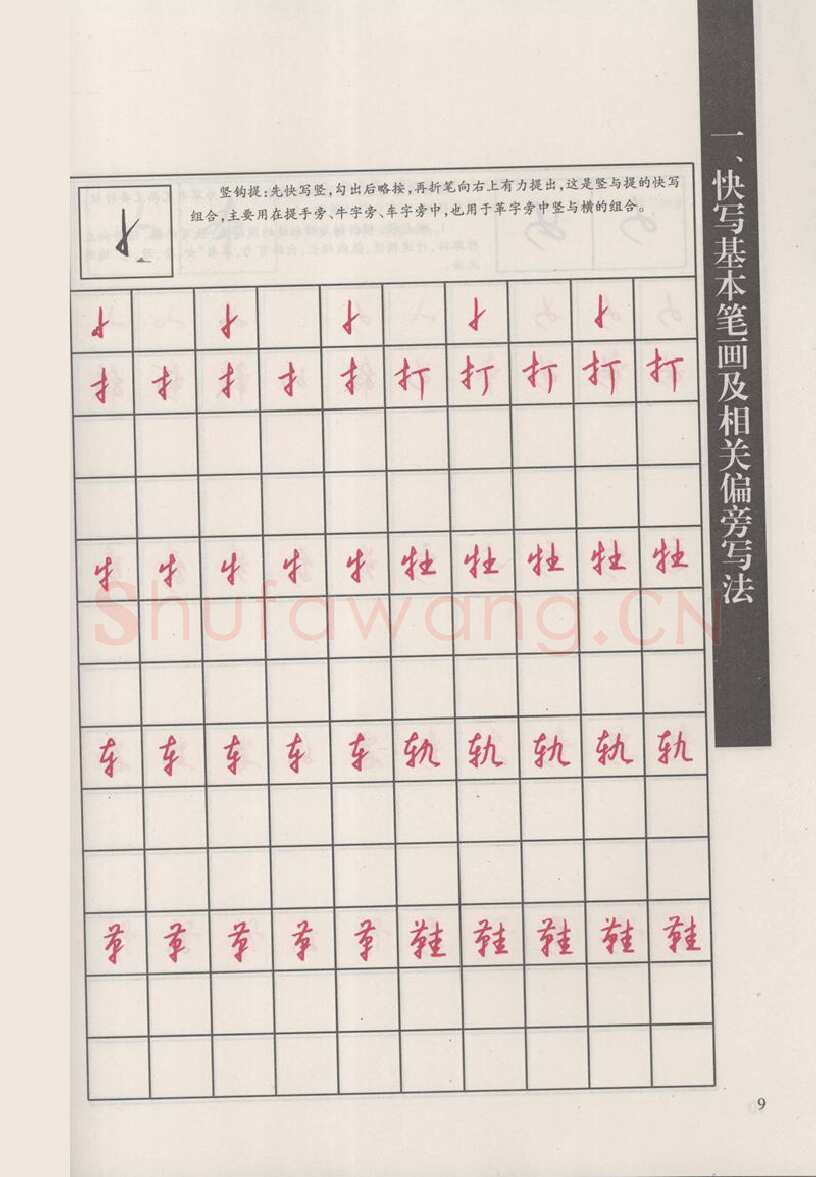 一、快写基本笔画及相关偏旁写法
竖钩提：先快写竖，勾出后略按，再折笔向右上有力提出，这是竖与提的快写
组合，主要用在提手旁、牛字旁、车字旁中，也用于革字旁中竖与横的组合。
扌 扌 扌 扌 扌 打 打 打 打 打
牜 牜 牜 牜 牜 牡 牡 牡 牡 牡
Shufawang.CN
车 车 车 车 车 轨 轨 轨 轨 轨
革 革 革 革 革 鞋 鞋 鞋 鞋 鞋
9